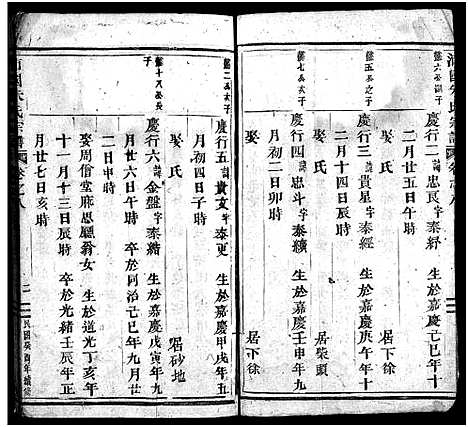 蒲國朱氏宗譜 卷之八
慶行二 諱忠泰字泰紓 生於嘉慶己巳年十
二月廿五日辰時
娶氏 居下徐
慶行三 諱貴星字泰經 生於嘉慶庚午年十
二月十四日辰時
娶氏 居柴頭
慶行四 諱忠斗字泰續 生於嘉慶壬申年九
月初二日卯時
娶氏 居下徐
慶行五 諱貴文字泰更 生於嘉慶甲戌年五
月初四日子時
娶氏 居砂地
慶行六 諱金盤字泰緒 生於嘉慶戊寅年九
月廿六日午時 卒於同治己巳年九月廿
二日申時
娶周僧堂麻思聰翁女 生於道光丁亥年
十一月十三日辰時 卒於光緒壬辰年正
月廿七日亥時
朱氏宗譜 卷之八
二
民國癸酉年續修